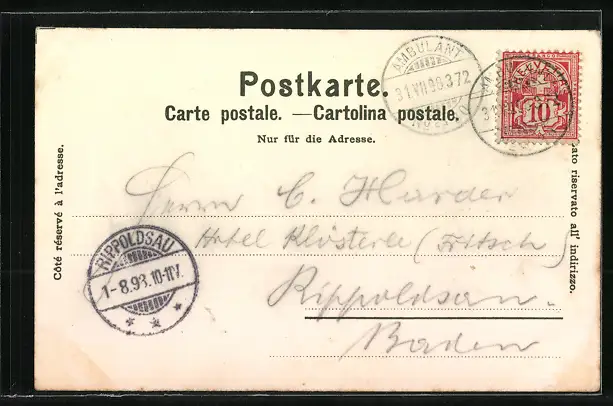 Postkarte.
Carte postale. — Cartolina postale.
Nur für die Adresse.
AMBULANT
31.VII.98.372
10
Côté réservé à l'adresse.
Lato riservato all' indirizzo.
Herrn C. Harder
Hotel Klösterle (Fritsch)
Rippoldsau.
Baden
RIPPOLDSAU
1-8.98.10-11V.